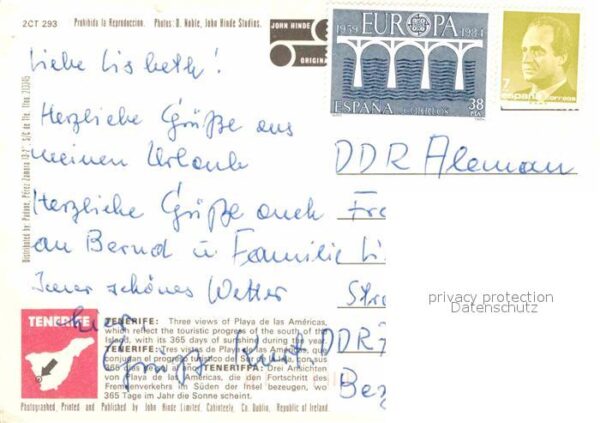 2CT 293 Prohibida la Reproduccion. Photos: D. Noble, John Hinde Studios.
JOHN HINDE
ORIGINAL
1959 EUROPA 1984
ESPAÑA CORREOS 38
7
españa correos
Liebe Lisbeth!
Herzliche Grüße aus
meinen Urlaub
Herzliche Grüße auch
an Bernd u Familie
Immer schönes Wetter
hier.
Grüße Kurt
DDR Aleman
Fre
Li
Str
DDR 7
Bez
privacy protection
Datenschutz
Distributed by:
TENERIFE
TENERIFE: Three views of Playa de las Américas,
which reflect the touristic progress of the south of the
Island, with its 365 days of sunshine during the year.
TENERIFE: Tres vistas de Playa de las Américas, que
conjugan el progreso turístico del Sur de la Isla, con sus
365 días de sol al año. TENERIFFA: Drei Ansichten
von Playa de las Américas, die den Fortschritt des
Fremdenverkehrs im Süden der Insel bezeugen, wo
365 Tage im Jahr die Sonne scheint.
Photographed, Printed and Published by John Hinde Limited, Cabinteely, Co. Dublin, Republic of Ireland.